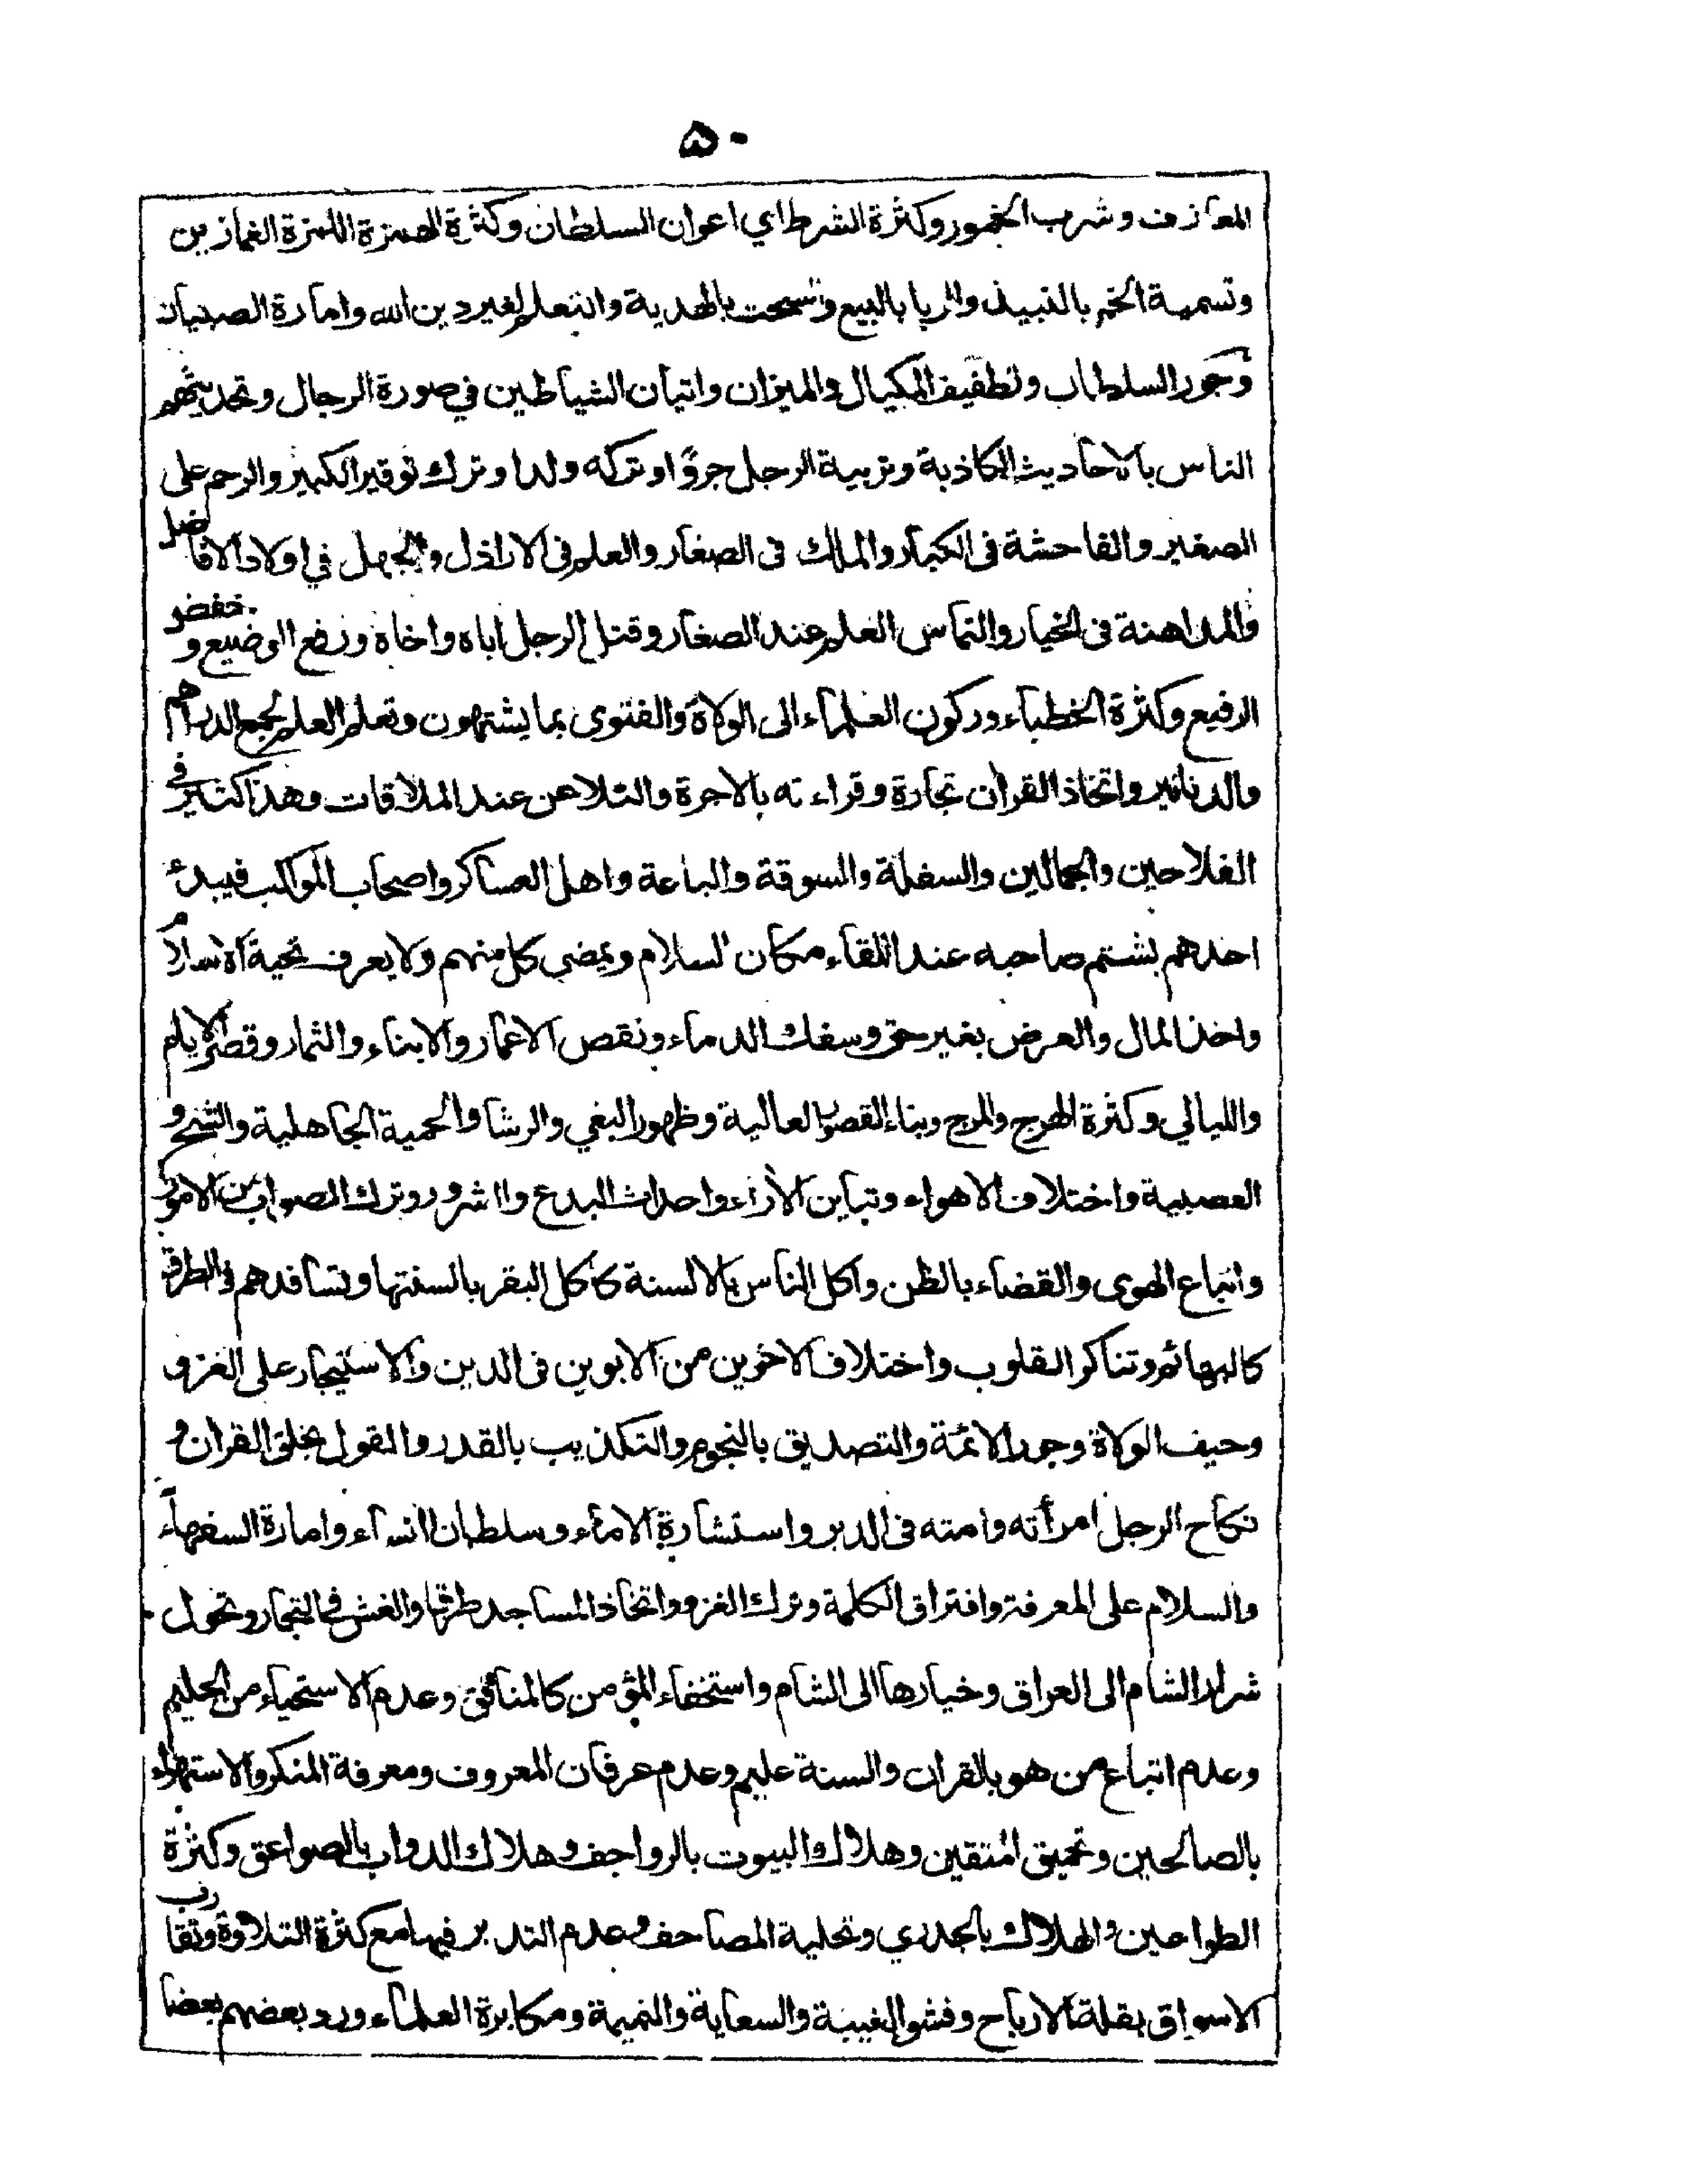 ٥٠
المعازف وشرب الخمور وكثرة الشرط اي اعوان السلطان وكثرة الهمزة اللمزة الغمازين
وتسمية الخمر بالنبيذ والربا بالبيع والسحت بالهدية والتعلم لغير دين الله وامارة الصبيان
وجور السلطان وتطفيف المكيال والميزان واتيان الشياطين في صورة الرجال وتحديثهم
الناس بالاحاديث الكاذبة وتربية الرجل جروًا وتركه ولدا وترك توقير الكبير والرحم على
الصغير والفاحشة فى الكبار والملك فى الصغار والعلم فى الاراذل والجهل في اولاد الافاضل
والمداهنة فى الخيار والتماس العلم عند الصغار وقتل الرجل اباه واخاه ورفع الوضيع وخفض
الرفيع وكثرة الخطباء وركون العلماء الى الولاة والفتوى بما يشتهون وتعلم العلم لجمع الدراهم
والدنانير واتخاذ القران تجارة وقراءته بالاجرة والتلاعن عند الملاقات وهذا كثير في
الفلاحين والجمالين والسفلة والسوقة والباعة واهل العساكر واصحاب المواكب فيبدء
احدهم بشتم صاحبه عند اللقاء مكان السلام ويمضى كل منهم ولا يعرف تحية الاسلام
واخذ المال والعرض بغير حق وسفك الدماء ونقص الاعمار والابناء والثمار وقصر الايام
والليالي وكثرة الهرج والمرج وبناء القصور العالية وظهور البغي والرشا والحمية الجاهلية والشح و
العصبية واختلاف الاهواء وتباين الآراء واحداث البدع والشرور وترك الصواب من الامور
واتباع الهوى والقضاء بالظن واكل الناس بالالسنة كاكل البقر بالسنتها وتسافدهم في الطرق
كالبهائم وتناكر القلوب واختلاف الاخوين من الابوين فى الدين والاستيجار على الغزو
وحيف الولاة وجور الائمة والتصديق بالنجوم والتكذيب بالقدر والقول بخلق القران و
نكاح الرجل امرأته وامته فى الدبر واستشارة الاماء وسلطان النساء وامارة السفهاء
والسلام على المعرفة وافتراق الكلمة وترك الغزو واتخاذ المساجد طرقا والغش في التجار وتحول
شرار الشام الى العراق وخيارها الى الشام واستخفاء المؤمن كالمنافق وعدم الاستحياء من الحليم
وعدم اتباع من هو بالقران والسنة عليم وعدم عرفان المعروف ومعرفة المنكر والاستهزاء
بالصالحين وتحميق المتقين وهلاك البيوت بالرواجف وهلاك الدواب بالصواعق وكثرة
الطواعين والهلاك بالجدري وتحلية المصاحف وعدم التدبر فيها مع كثرة التلاوة وتقارب
الاسواق بقلة الارباح وفشو الغيبة والسعاية والنميمة ومكابرة العلماء ورد بعضهم بعضا